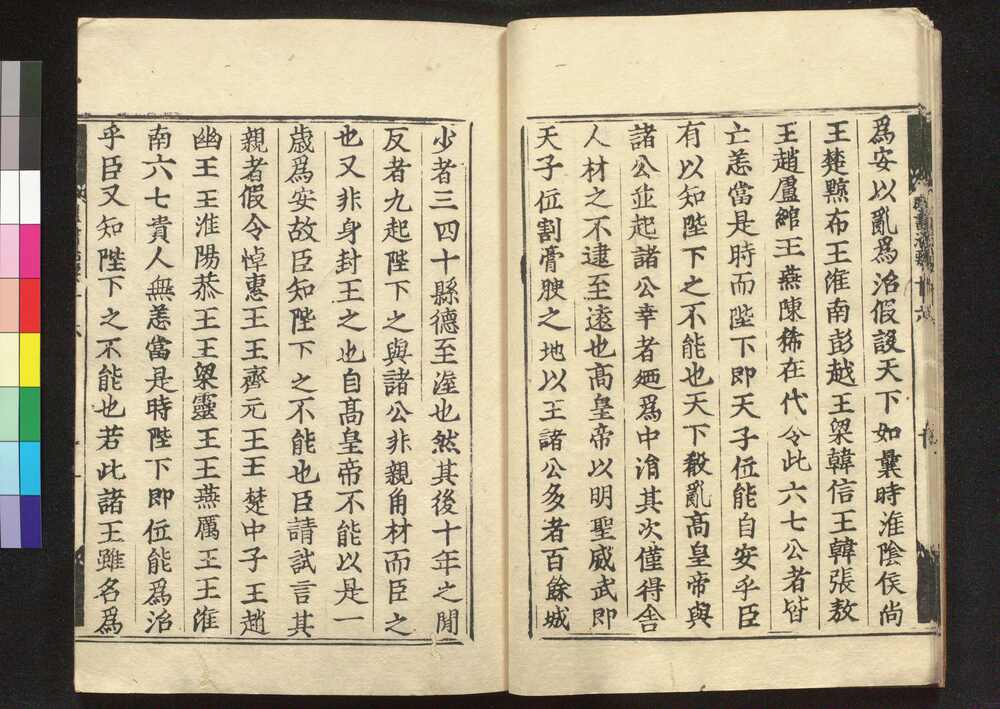 爲安以亂爲治假設天下如曩時淮陰侯尚
王楚黥布王淮南彭越王梁韓信王韓張敖
王趙盧綰王燕陳豨在代令此六七公者皆
亡恙當是時而陛下即天子位能自安乎臣
有以知陛下之不能也天下殽亂高皇帝與
諸公並起諸公幸者廼爲中涓其次僅得舍
人材之不逮至遠也高皇帝以明聖威武即
天子位割膏腴之地以王諸公多者百餘城
少者三四十縣德至渥也然其後十年之間
反者九起陛下之與諸公非親角材而臣之
也又非身封王之也自高皇帝不能以是一
歳爲安故臣知陛下之不能也臣請試言其
親者假令悼惠王王齊元王王楚中子王趙
幽王王淮陽恭王王梁靈王王燕厲王王淮
南六七貴人無恙當是時陛下即位能爲治
乎臣又知陛下之不能也若此諸王雖名爲